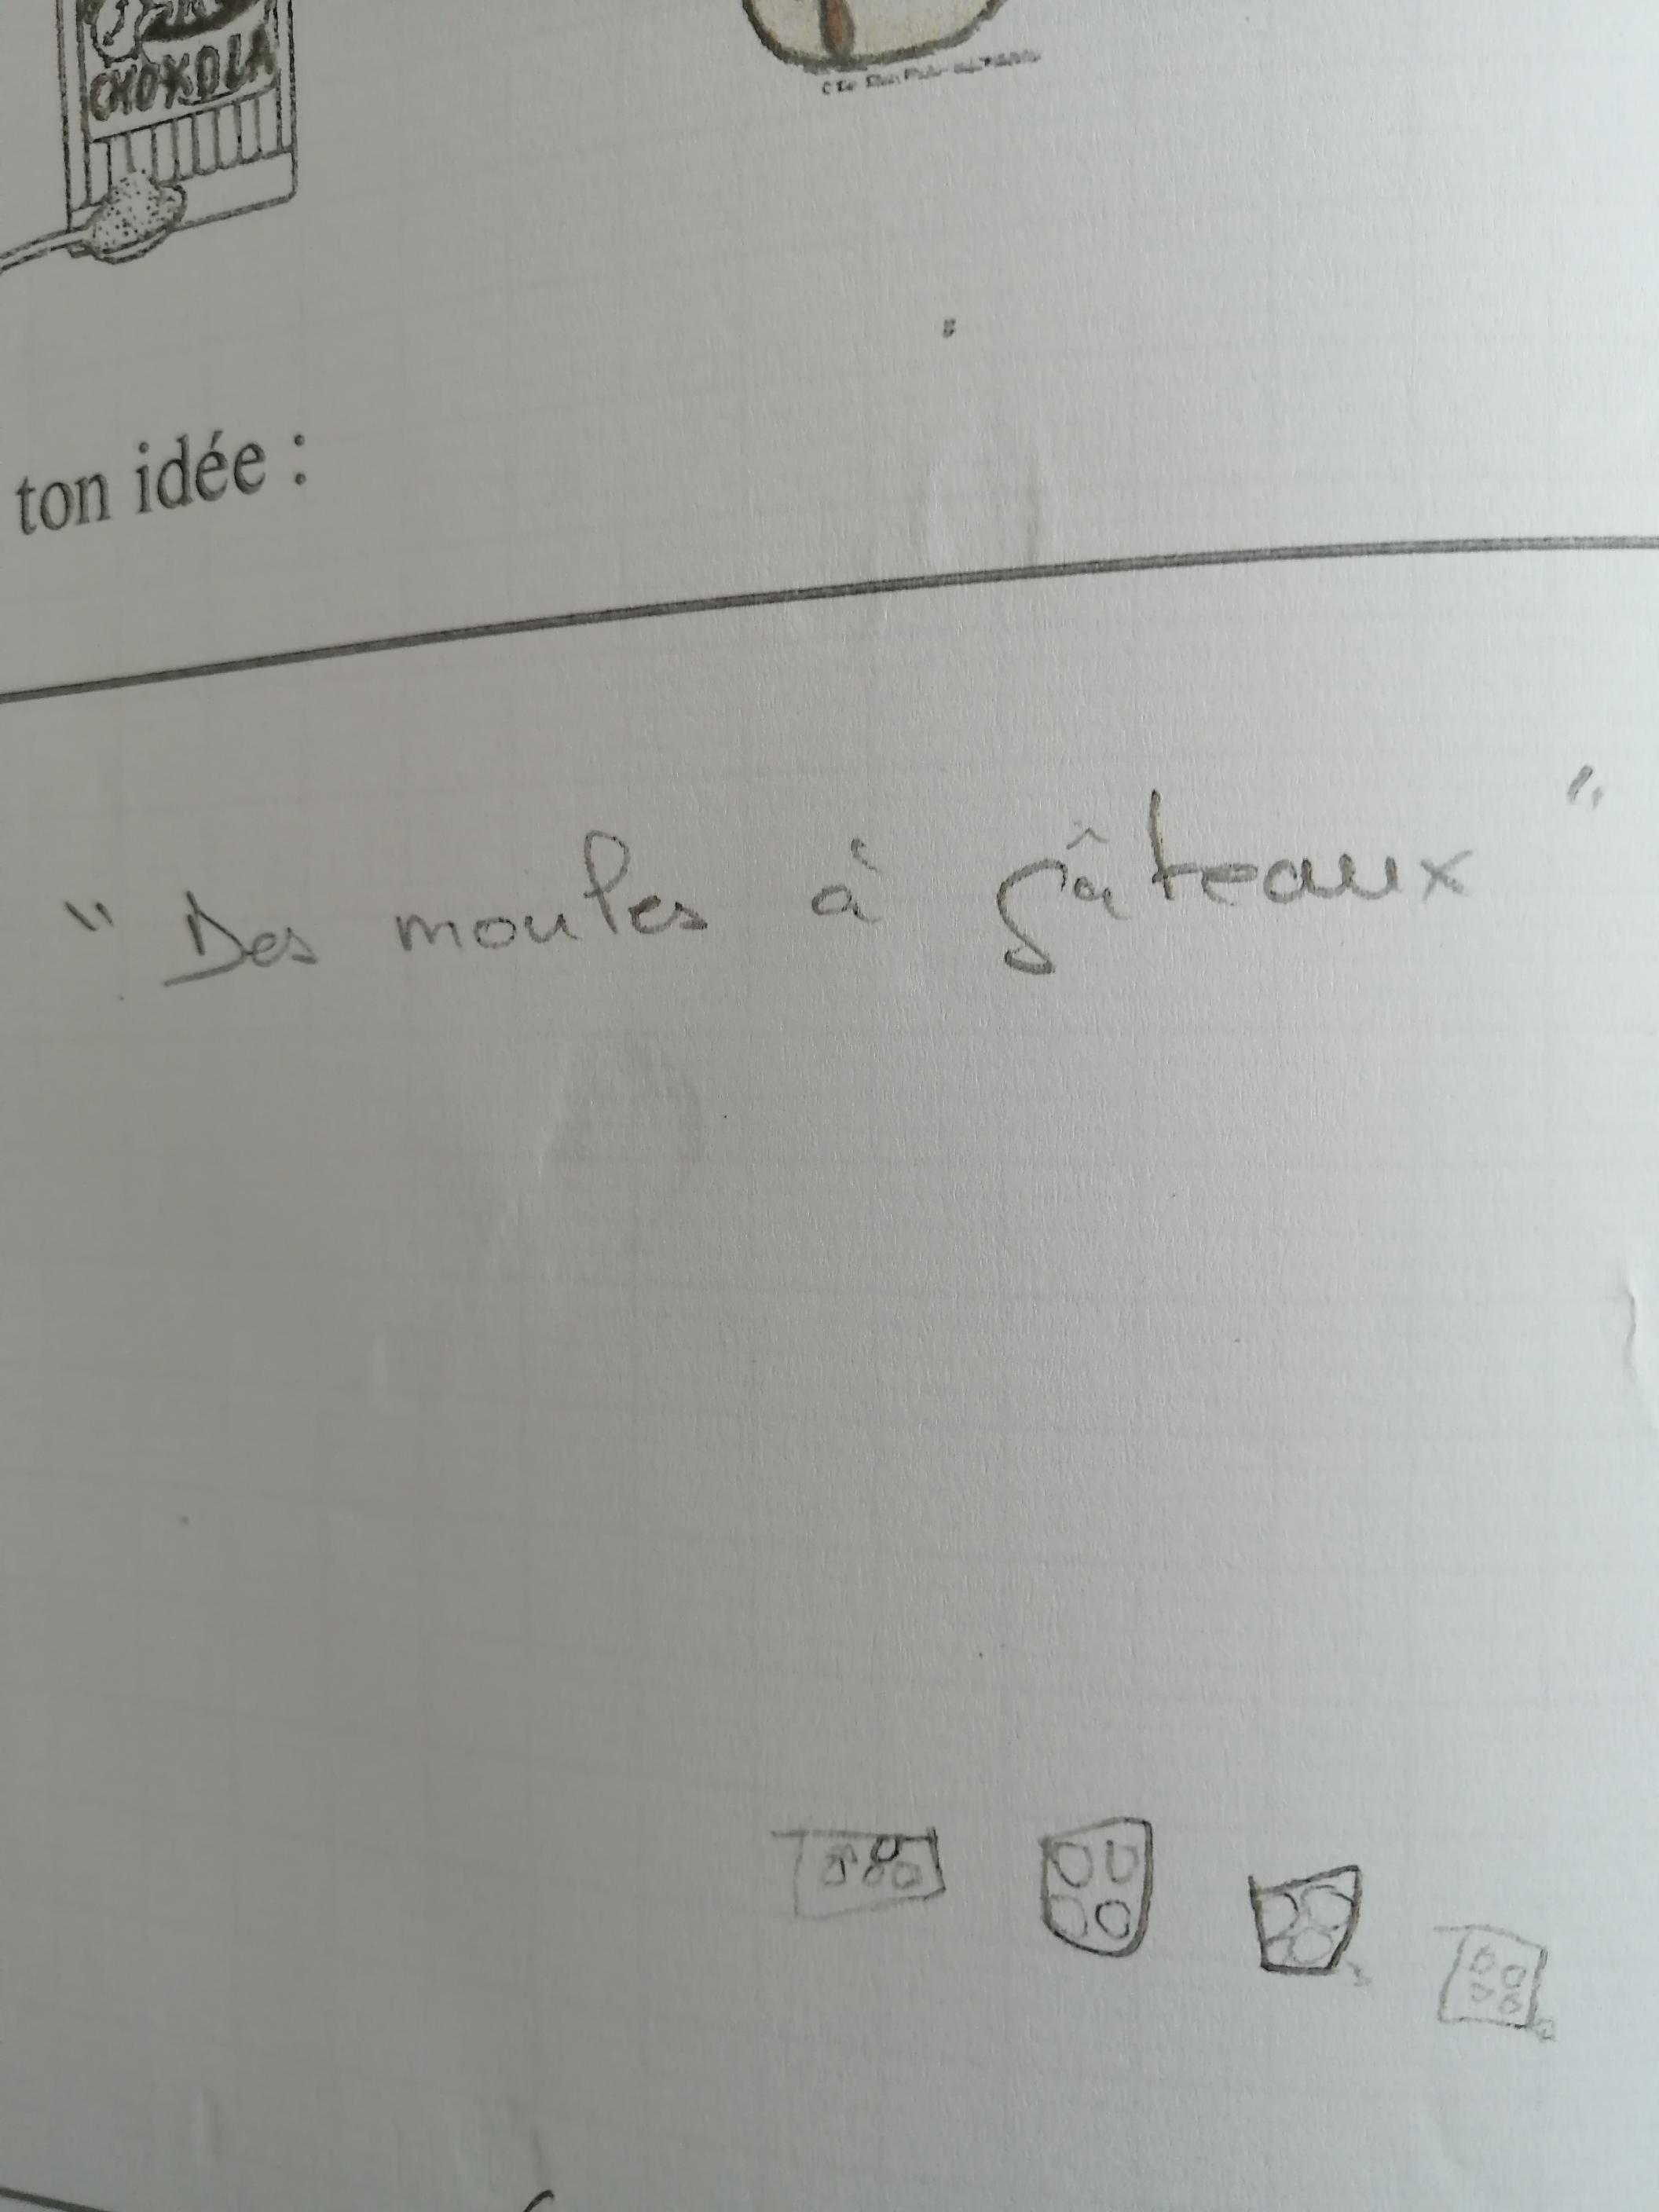 CHOKOLA
ton idée :
" Des moules à gâteaux "